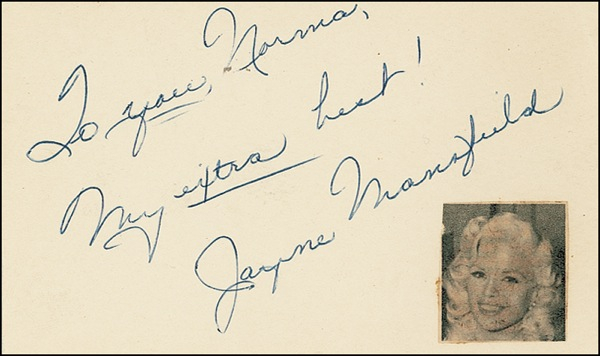 To you, Norma,
My extra best!
Jayne Mansfield